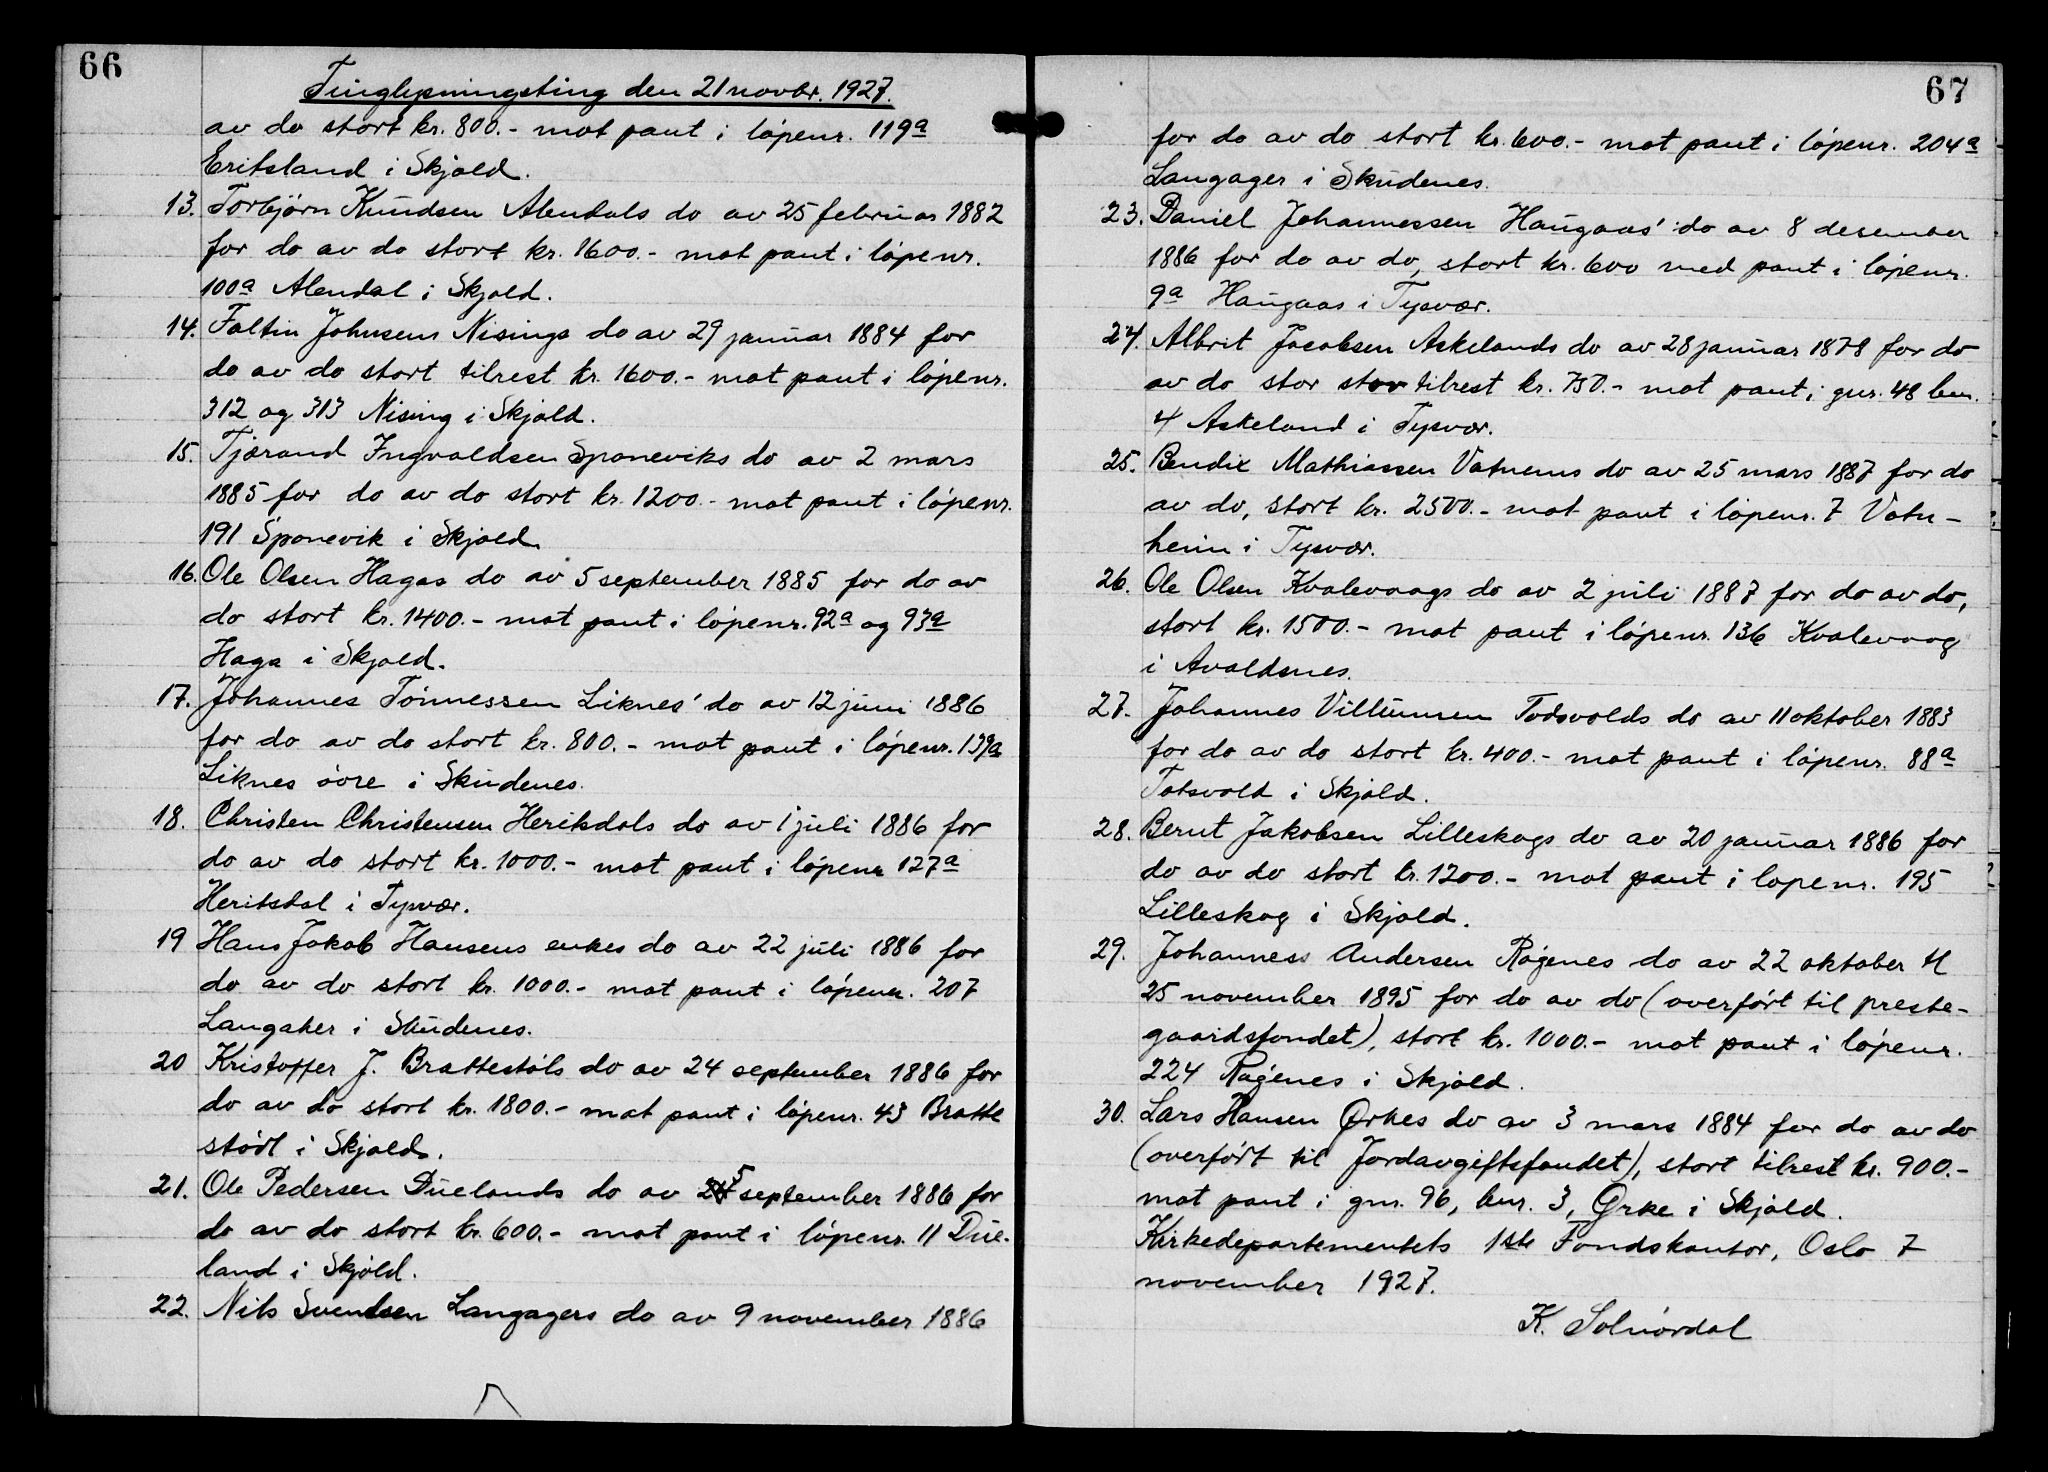 66
Tinglysningsting den 21 novbr. 1927.
av do stort kr. 800.- mot pant i löpenr. 119a
Eritsland i Skjold.
13. Torbjörn Knudsen Alendals do av 25 februar 1882
for do av do stort kr. 1600.- mot pant i löpenr.
100a Alendal i Skjold.
14. Faltin Johnsens Nisings do av 29 januar 1884 for
do av do stort tilrest kr. 1600.- mot pant i löpenr.
312 og 313 Nising i Skjold.
15. Tjærand Ingvaldsen Sponeviks do av 2 mars
1885 for do av do stort kr. 1200.- mot pant i löpenr.
191 Sponevik i Skjold.
16. Ole Olsen Hagas do av 5 september 1885 for do av
do stort kr. 1400.- mot pant i löpenr. 92a og 93a
Haga i Skjold.
17. Johannes Tönnessen Liknes' do av 12 juni 1886
for do av do stort kr. 800.- mot pant i löpenr. 139a
Liknes övre i Skudenes.
18. Christen Christensen Heriksdals do av 1 juli 1886 for
do av do stort kr. 1000.- mot pant i löpenr 127a
Heritsdal i Tysvær.
19 Hans Jakob Hansens enkes do av 22 juli 1886 for
do av do stort kr. 1000.- mot pant i löpenr. 207
Langaker i Skudenes.
20 Kristoffer J. Brattestöls do av 24 september 1886 for
do av do stort kr. 1800.- mot pant i löpenr. 43 Bratte
stöl i Skjold.
21. Ole Pedersen Duelands do av 25 september 1886 for
do av do stort kr. 600.- mot pant i löpenr. 11 Due-
land i Skjold.
22. Nils Svendsen Langagers do av 9 november 1886
67
for do av do stort kr. 600.- mot pant i löpenr. 204a
Langager i Skudenes.
23. Daniel Johannessen Haugaas' do av 8 desember
1886 for do av do, stort kr. 600 med pant i löpenr.
9a Haugaas i Tysvær.
24. Albrit Jacobsen Askelands do av 28 januar 1878 for do
av do stor stor tilrest kr. 750.- mot pant i gnr. 48 bnr.
4 Askeland i Tysvær.
25. Bendix Mathiassen Vatnems do av 25 mars 1887 for do
av do, stort kr. 2500.- mot pant i löpenr. 7 Vatn-
heim i Tysvær.
26. Ole Olsen Kvalevaags do av 2 juli 1887 for do av do,
stort kr. 1500.- mot pant i löpenr. 136 Kvalevaag
i Avaldsnes.
27. Johannes Villumsen Todsvolds do av 11 oktober 1883
for do av do stort kr. 400.- mot pant i löpenr. 88a
Totsvold i Skjold.
28. Bernt Jakobsen Lilleskogs do av 20 januar 1886 for
do av do stort kr. 1200.- mot pant i lopenr. 195
Lilleskog i Skjold.
29. Johanness Andersen Rögenes do av 22 oktober tl
25 november 1895 for do av do (overfört til preste-
gaardsfondet), stort kr. 1000.- mot pant i löpenr.
224 Rögenes i Skjold.
30. Lars Hansen Ørkes do av 3 mars 1884 for do av do
(overfört til Jordavgiftsfondet), stort tilrest kr. 900.-
mot pant i gnr. 96, bnr. 3, Ørke i Skjold.
Kirkedepartementets 1ste Fondskontor, Oslo 7
november 1927.
K. Solnördal